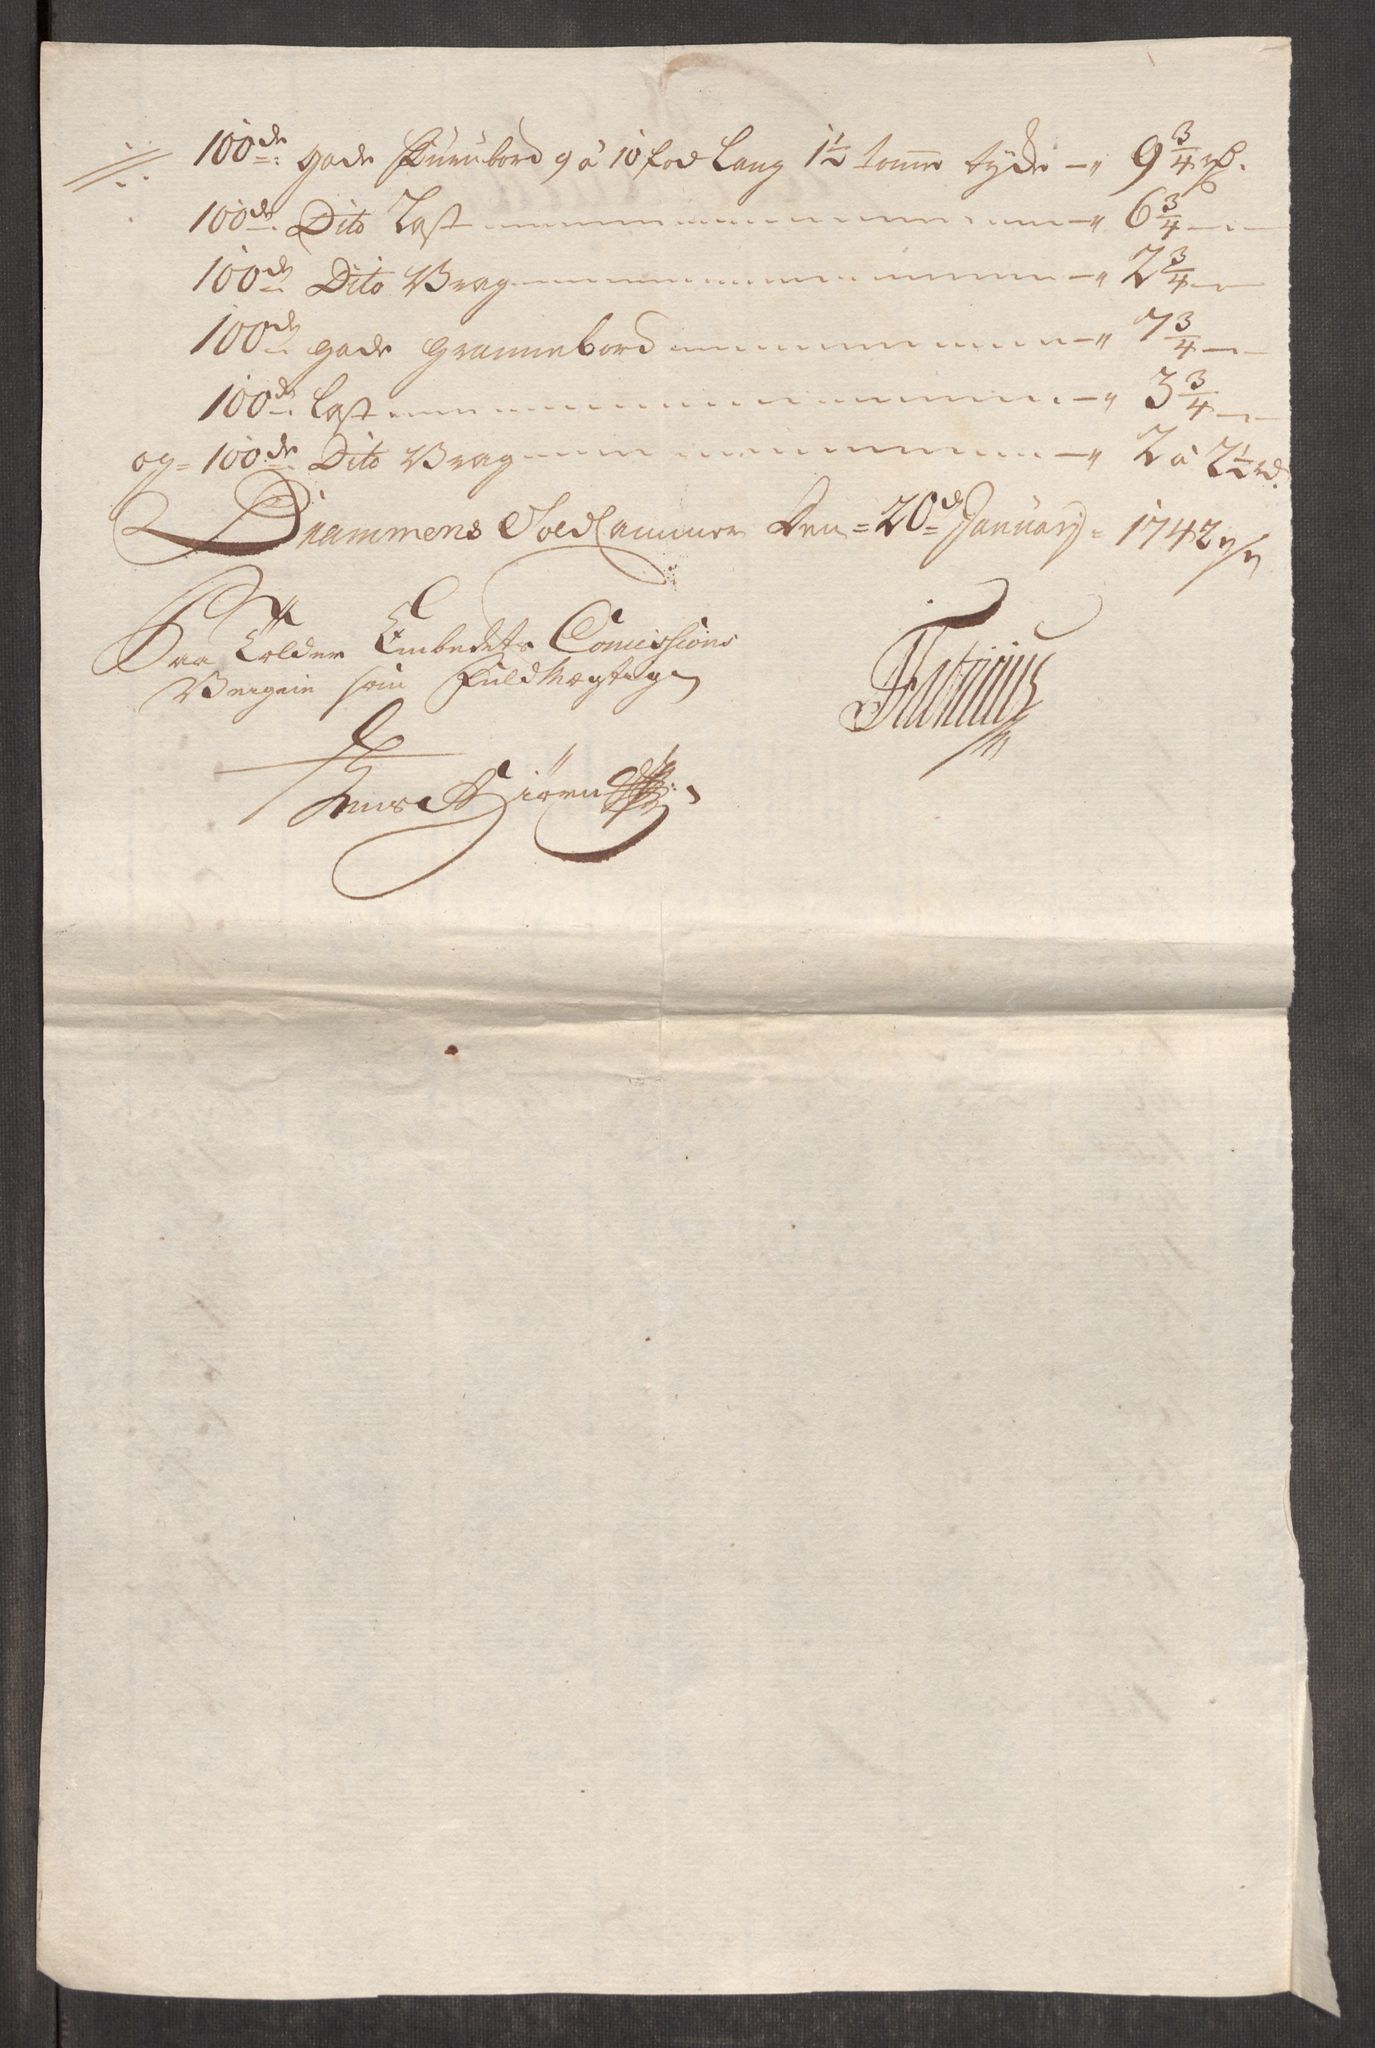 100de gode Fuurubord 9 á 10 fod lang 1½ tomme tyche 9 3/4 rd.
100de Dito Last 6 3/4
100de Dito Vrag 2 3/4
100de gode grannebord 7 3/4
100de Last 3 3/4
og 100de Dito Vrag 2 á 2½ rd.
Drammens Toldcammer Den 20d January 1742
Paa Tolder Embedets Comissions
Vegnie som Fuldmegtig
Fabritius
Jens Biørn